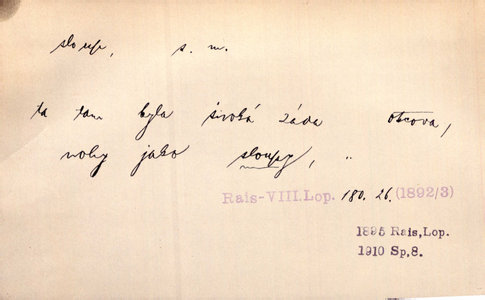 sloup, s. m.
ta tam byla široká záda otcova,
nohy jako sloupy, "
Rais-VIII.Lop. 180. 26. (1892/3)
1895 Rais,Lop.
1910 Sp,8.